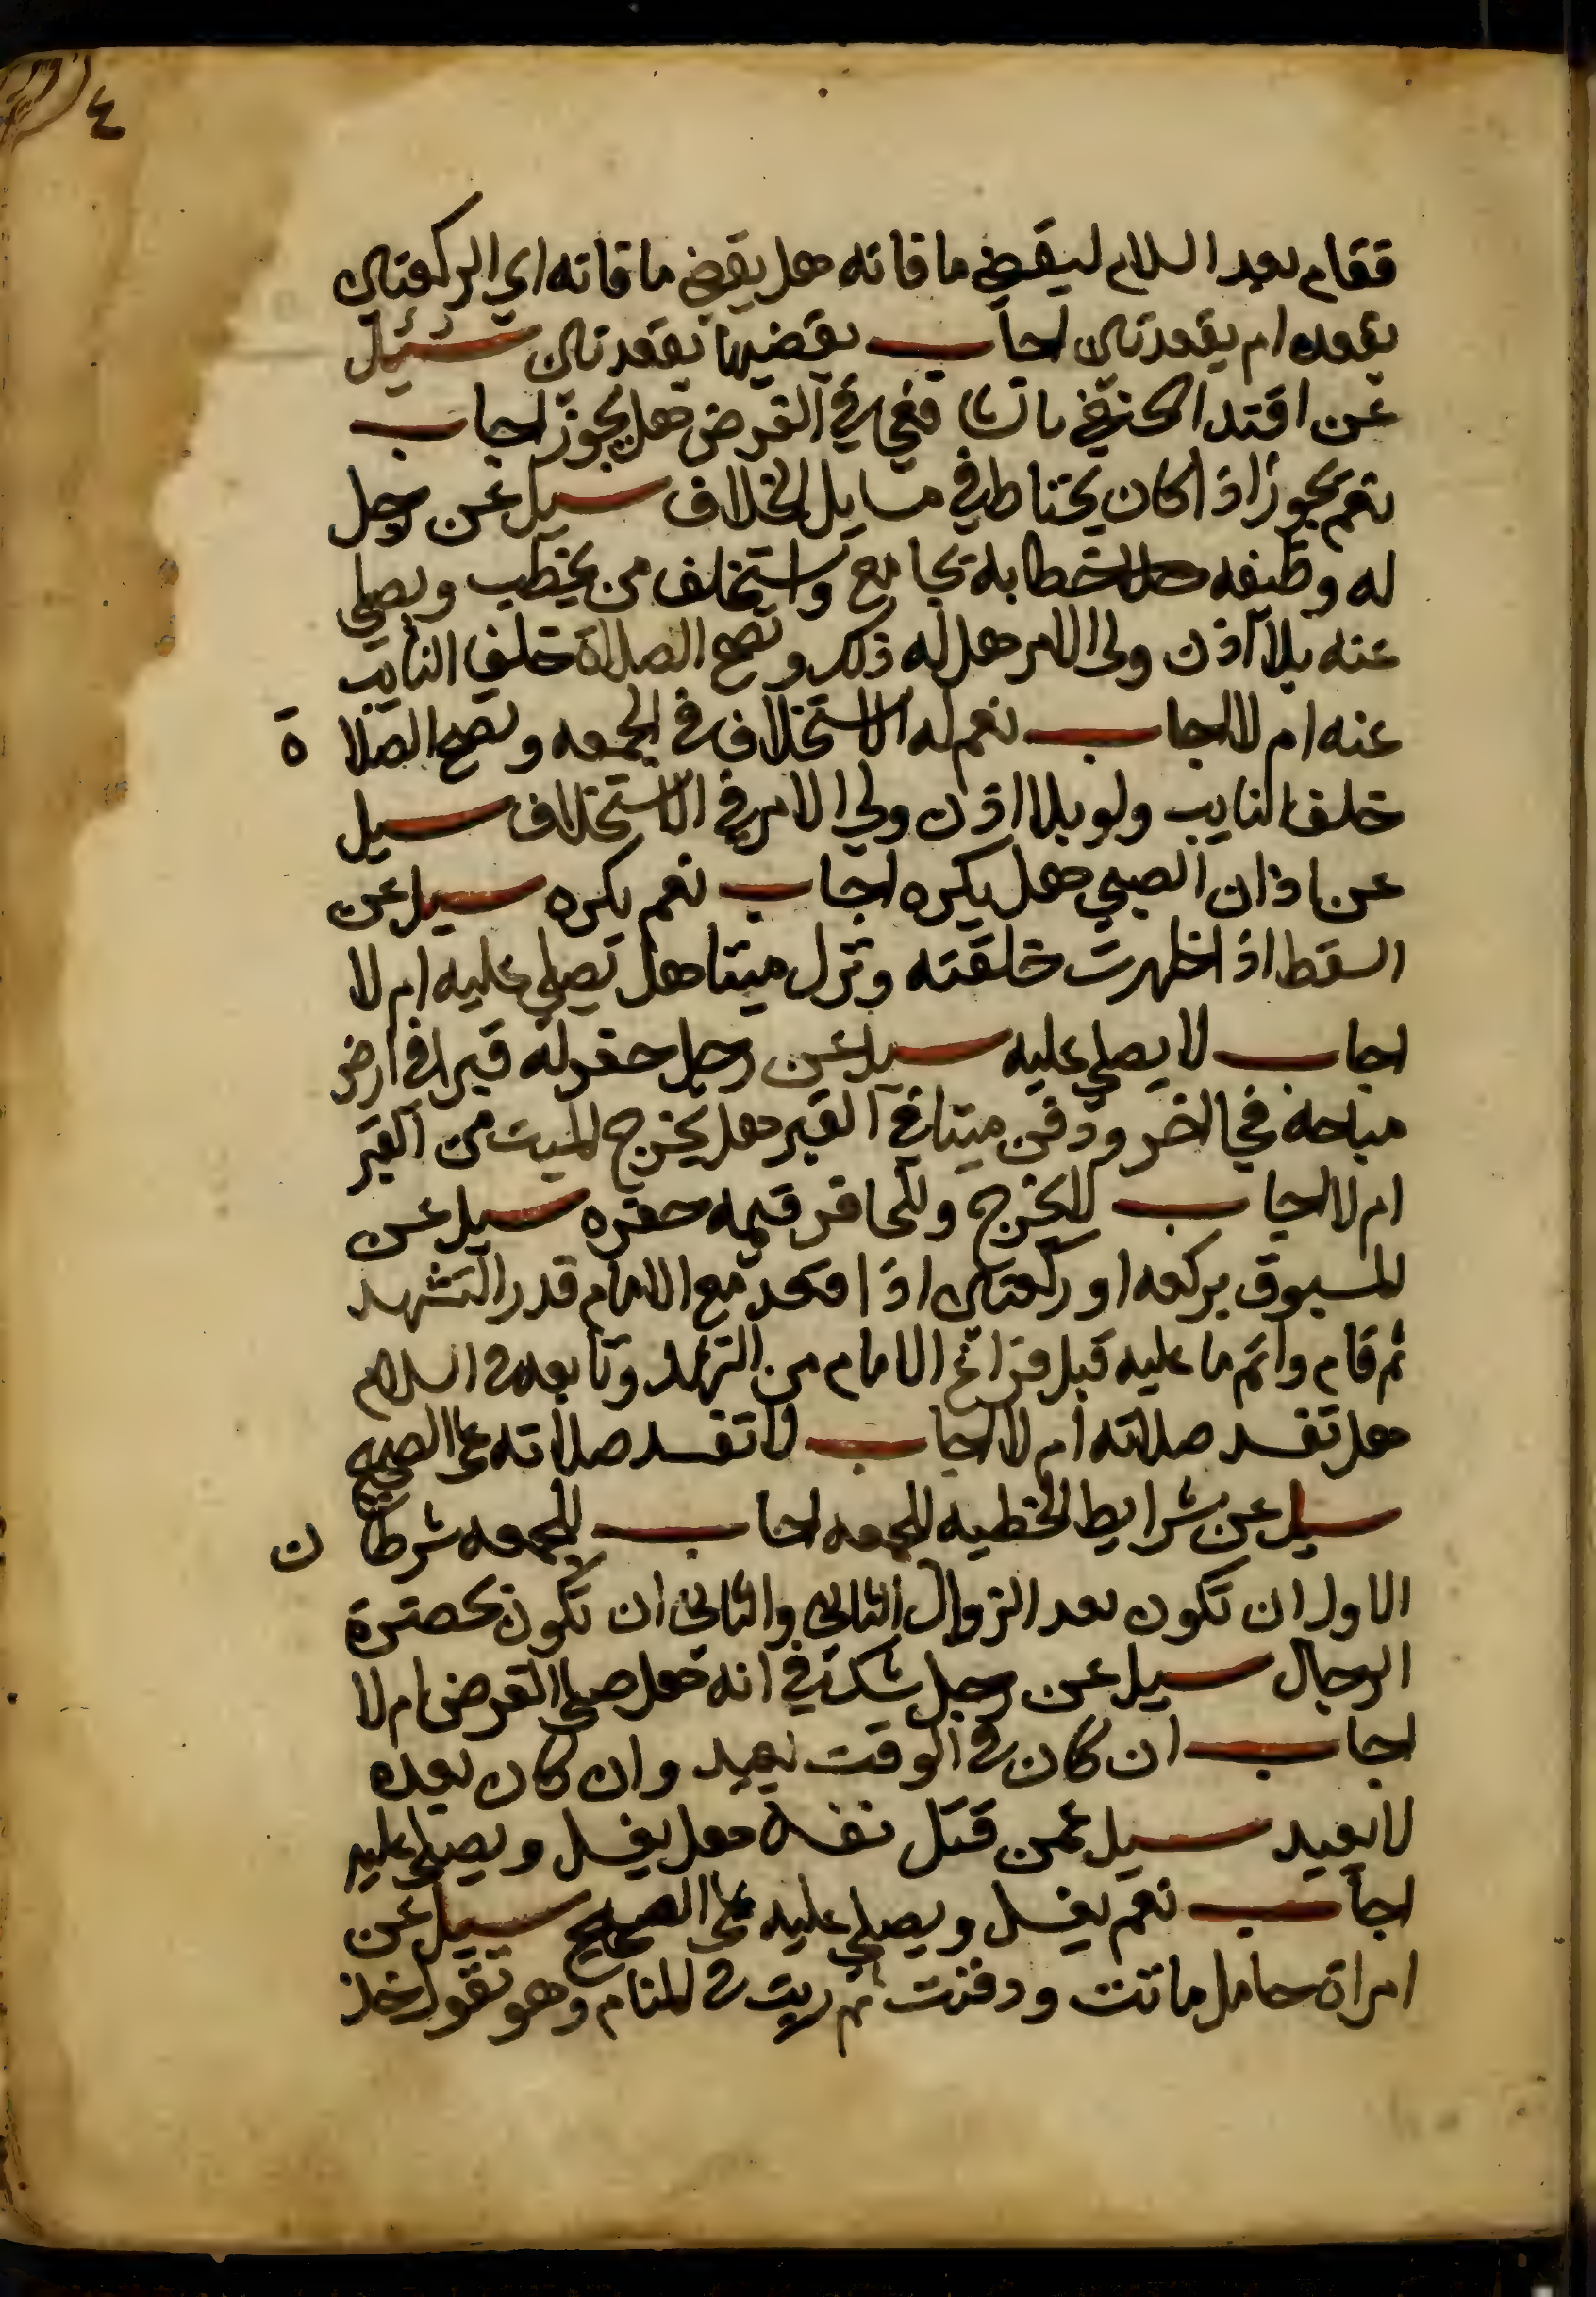 ٤
فقام بعد السلام ليقضي ما فاته هل يقضي ما فاته اي الركعتين
بقعده ام بقعدتين اجاب يقضيها بقعدتين سئيل
عن اقتدا الحنفي بالشافعي في الفرض هل يجوز اجاب
نعم يجوز اذا كان يحتاط في مسايل الخلاف سيل عن رجل
له وظيفه الخطابة بجامع واستخلف من يخطب ويصلي
عنه بلا اذن ولي الامر هل له ذلك وتصح الصلاة خلف النايب
عنه ام لا اجاب نعم له الاستخلاف في الجمعه وتصح الصلا ة
خلف النايب ولو بلا اذن ولي الامر في الاستخلاف سيل
عن اذان الصبي هل يكره اجاب نعم يكره سيل عن
السقط اذا ظهرت خلقته ونزل ميتا هل يصلي عليه ام لا
اجاب لا يصلي عليه سيل عن رجل حفر له قبرا في ارض
مباحه فجا اخر ودفن ميتا في القبر هل يخرج الميت من القبر
ام لا اجاب لا يخرج وللحافر قيمه حفره سيل عن
المسبوق بركعه او ركعتين اذا قعد مع الامام قدر التشهد
ثم قام واتم ما عليه قبل فراغ الامام من التشهد وتابعه في السلام
هل تفسد صلاته ام لا اجاب لا تفسد صلاته على الصحيح
سيل عن شرايط الخطبه للجمعه اجاب للجمعه شرطا ن
الاول ان تكون بعد الزوال الثاني والثاني ان تكون بحضرة
الرجال سيل عن رجل شك في انه هل صلى الفرض ام لا
اجاب ان كان في الوقت يعيد وان كان بعده
لا يعيد سيل عمن قتل نفسه هل يغسل ويصلي عليه
اجاب نعم يغسل ويصلي عليه على الصحيح سيل عن
امراة حامل ماتت ودفنت ثم ريت في المنام وهو تقول